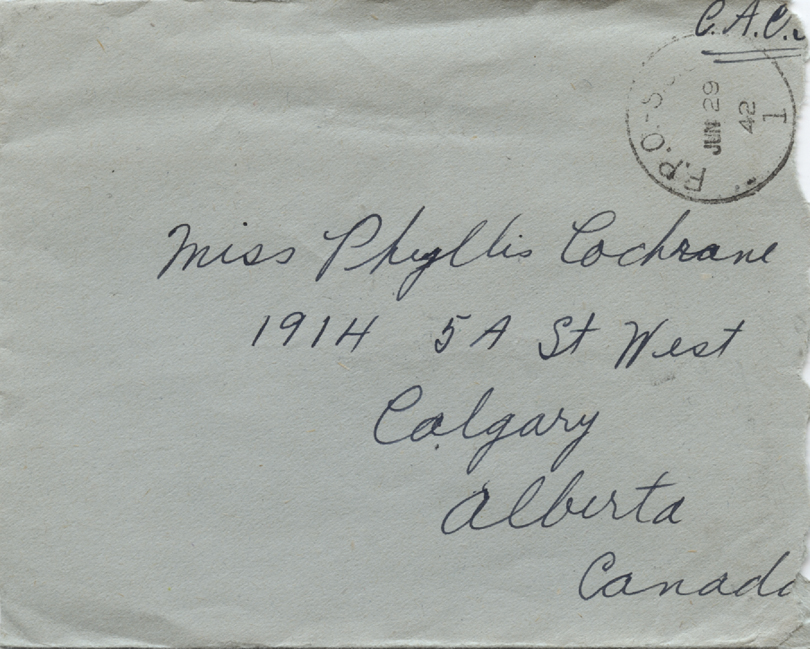 C.A.O.
F.P.O.-S.
JUN 29
42
1
Miss Phyllis Cochrane
1914 5A St West
Calgary
Alberta
Canada